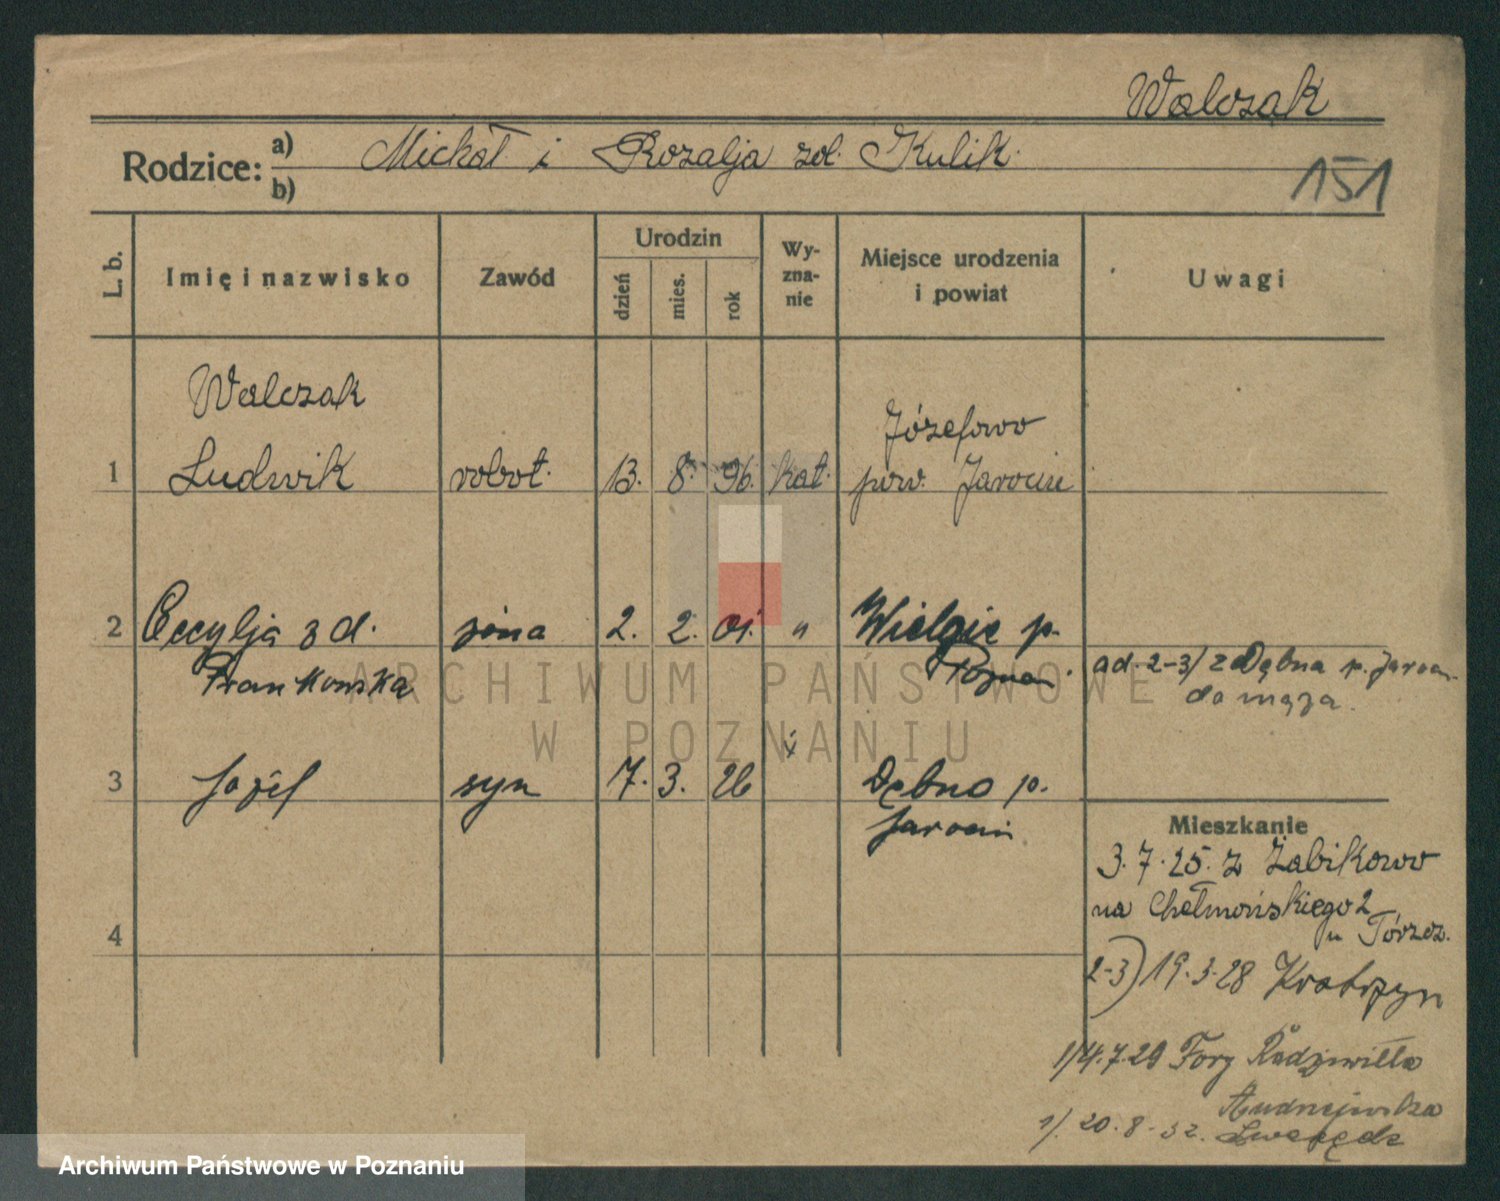 Walczak
Rodzice: a) Michał i Rozalja zol. Kulik.
b)
151
L. b. Imię i nazwisko Zawód Urodzin dzień mies. rok Wyznanie Miejsce urodzenia i powiat Uwagi
Walczak Józefowo
1 Ludwik robot. 13. 8. 96. kat. pow. Jarocin
2 Cecylja z d. żona 2. 2. 01. " Wielgie p.
Frankowska Poznań. ad. 2-3/ z Dębna p. Jarocin.
do męża.
3 Józef syn 7. 3. 26 " Dębno p.
Jarocin
Mieszkanie
3. 7. 25. z Żabikowo
na Chełmońskiego 2
u
4
2-3) 19. 3. 28 Kostrzyn
1/4. 7. 29 Radziwiłła
1/. 20. 8. 32. Swarzędz
ARCHIWUM PAŃSTWOWE
W POZNANIU
Archiwum Państwowe w Poznaniu